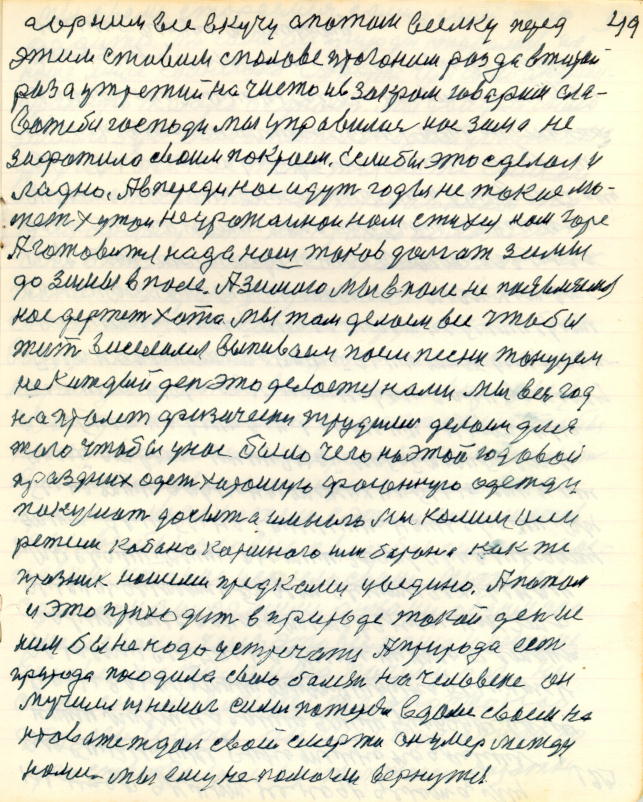 49
горним все вкучу а потом веилку перед
этим ставим сполове прогоним раз да втирой
раз а утретий на чисто и в закром говарим сла-
Ва теби господи мы управилися нас зима не
захватила своим покровом. Если бы это сделал и
ладно. А впереди нас идут годы не такие мо-
жет худой неурожайной ном стихея ном горе
А готовится нада нам токо долга от зимы
до зимы в поле. А зимою мы в поле не появляемся
нас держет хата мы там делаем все чтобы
жит висемлися выпиваем поем песни танцуем
не каждый ден это делается нами мы вес год
физически трудимс делаем для
таго чтобы у нас было чего на этой годовой
праздник одет харошую фасонную одежду
покушат досыта имного мы колим или
режим кабана каршнаго или барана как же
празник нашими предками уведино. А потом
и это приходит в природе такой ден не
ним бы не нада устречатц А природа ест
природа посодила свою балезн на человеке он
мучился и немог силы потерял в доме своем на
кровате ждал свой смерти он умер между
нами. мы ему не помогли вернутся